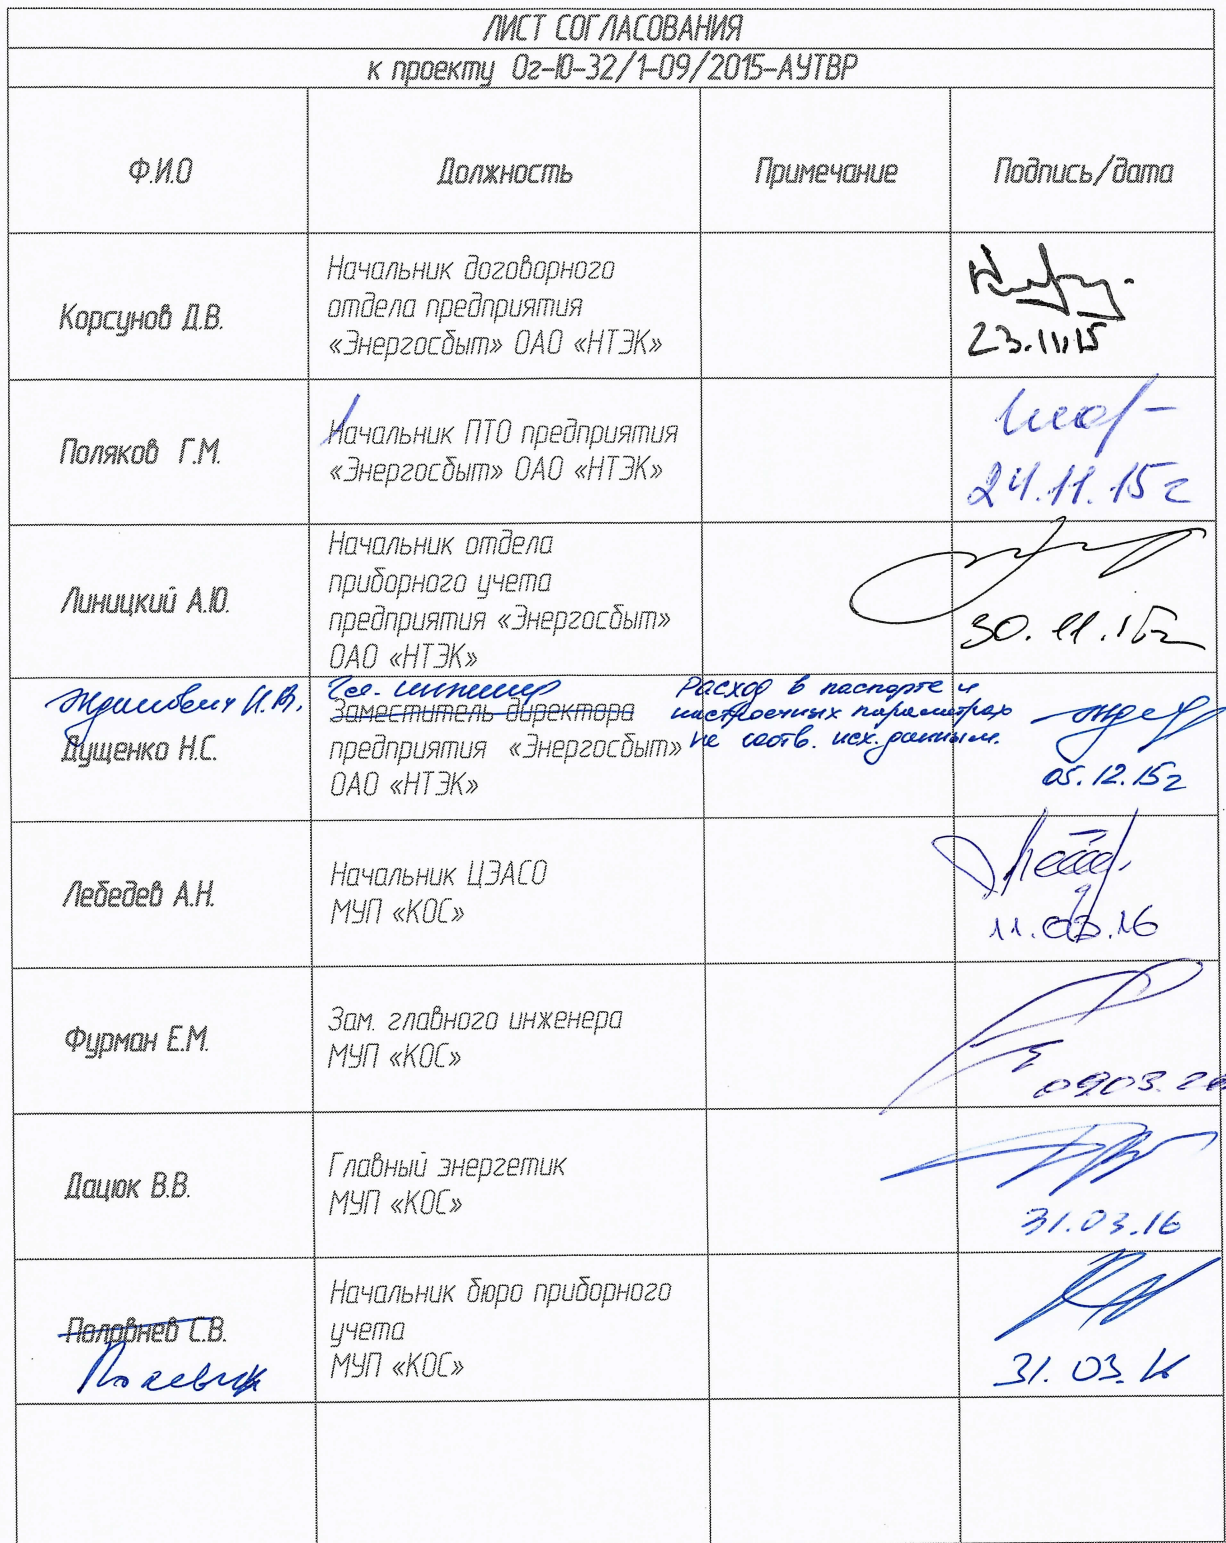 ЛИСТ СОГЛАСОВАНИЯ
к проекту Ог-Ю-32/1-09/2015-АУТВР
Ф.И.О Должность Примечание Подпись/дата
Корсунов Д.В.
Начальник договорного
отдела предприятия
«Энергосбыт» ОАО «НТЭК»
23.11.15
Поляков Г.М.
Начальник ПТО предприятия
«Энергосбыт» ОАО «НТЭК»
24.11.15г
Линицкий А.Ю.
Начальник отдела
приборного учета
предприятия «Энергосбыт»
ОАО «НТЭК»
30.11.15г
Дущенко Н.С.
Гл. инженер
Заместитель директора
предприятия «Энергосбыт»
ОАО «НТЭК»
Расход в паспорте и
настроечных параметрах
не соотв. исх. данным.
05.12.15г
Лебедев А.Н.
Начальник ЦЭАСО
МУП «КОС»
11.03.16
Фурман Е.М.
Зам. главного инженера
МУП «КОС»
Дацюк В.В.
Главный энергетик
МУП «КОС»
31.03.16
Половнев С.В.
Начальник бюро приборного
учета
МУП «КОС»
31.03.16